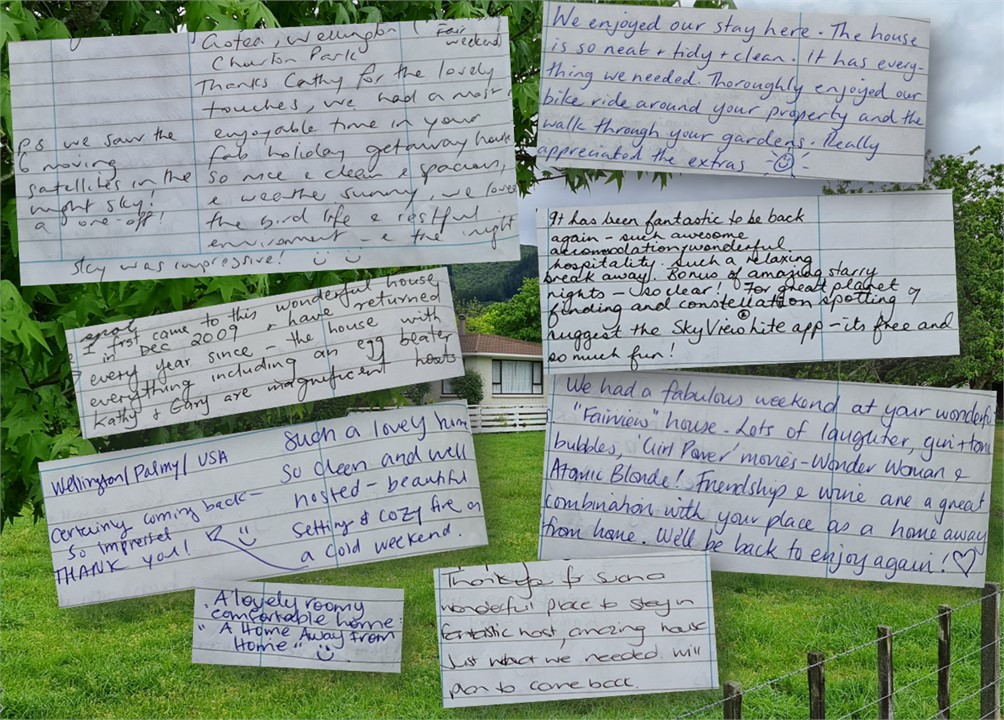 Aotea, Wellington (Fair weekend)
Churton Park
Thanks Cathy for the lovely
touches, we had a most
enjoyable time in your
fab holiday getaway house
so nice & clean & spacious,
& weathe sunny, we loved
the bird life & restful
environment - & the night
stay was impressive!
ps we saw the
6 moving
satellites in the
night sky!
a one-off!
We enjoyed our stay here. The house
is so neat + tidy + clean. It has every-
thing we needed. Thoroughly enjoyed our
bike ride around your property and the
walk through your gardens. Really
appreciated the extras
It has been fantastic to be back
again - such awesome
accomodation, wonderful
hospitality. Such a relaxing
break away. Bonus of amazing starry
nights - so clear! For great planet
finding and constellation spotting I
suggest the SkyView lite app - its free and
so much fun!
I first came to this wonderful house
in Dec 2009 + have returned
every year since - the house with
everything including an egg beater
Kathy & Gary are magnificent hosts
We had a fabulous weekend at your wonderful
"Fairview" house. Lots of laughter, gin + tonic
bubbles, 'Girl Power' movies - Wonder Woman &
Atomic Blonde! Friendship & wine are a great
combination with your place as a home away
from home. We'll be back to enjoy again!
Wellington/Palmy/USA
Certainly coming back -
so impressed
THANK YOU!
Such a lovey
So clean and well
hosted - beautiful
setting & cozy fire on
a cold weekend.
A lovely roomy
comfortable home:
"A Home Away From
Home"
Thankyou for such a
wonderful place to stay in
fantastic host, amazing house
Just what we needed. will
plan to come back.